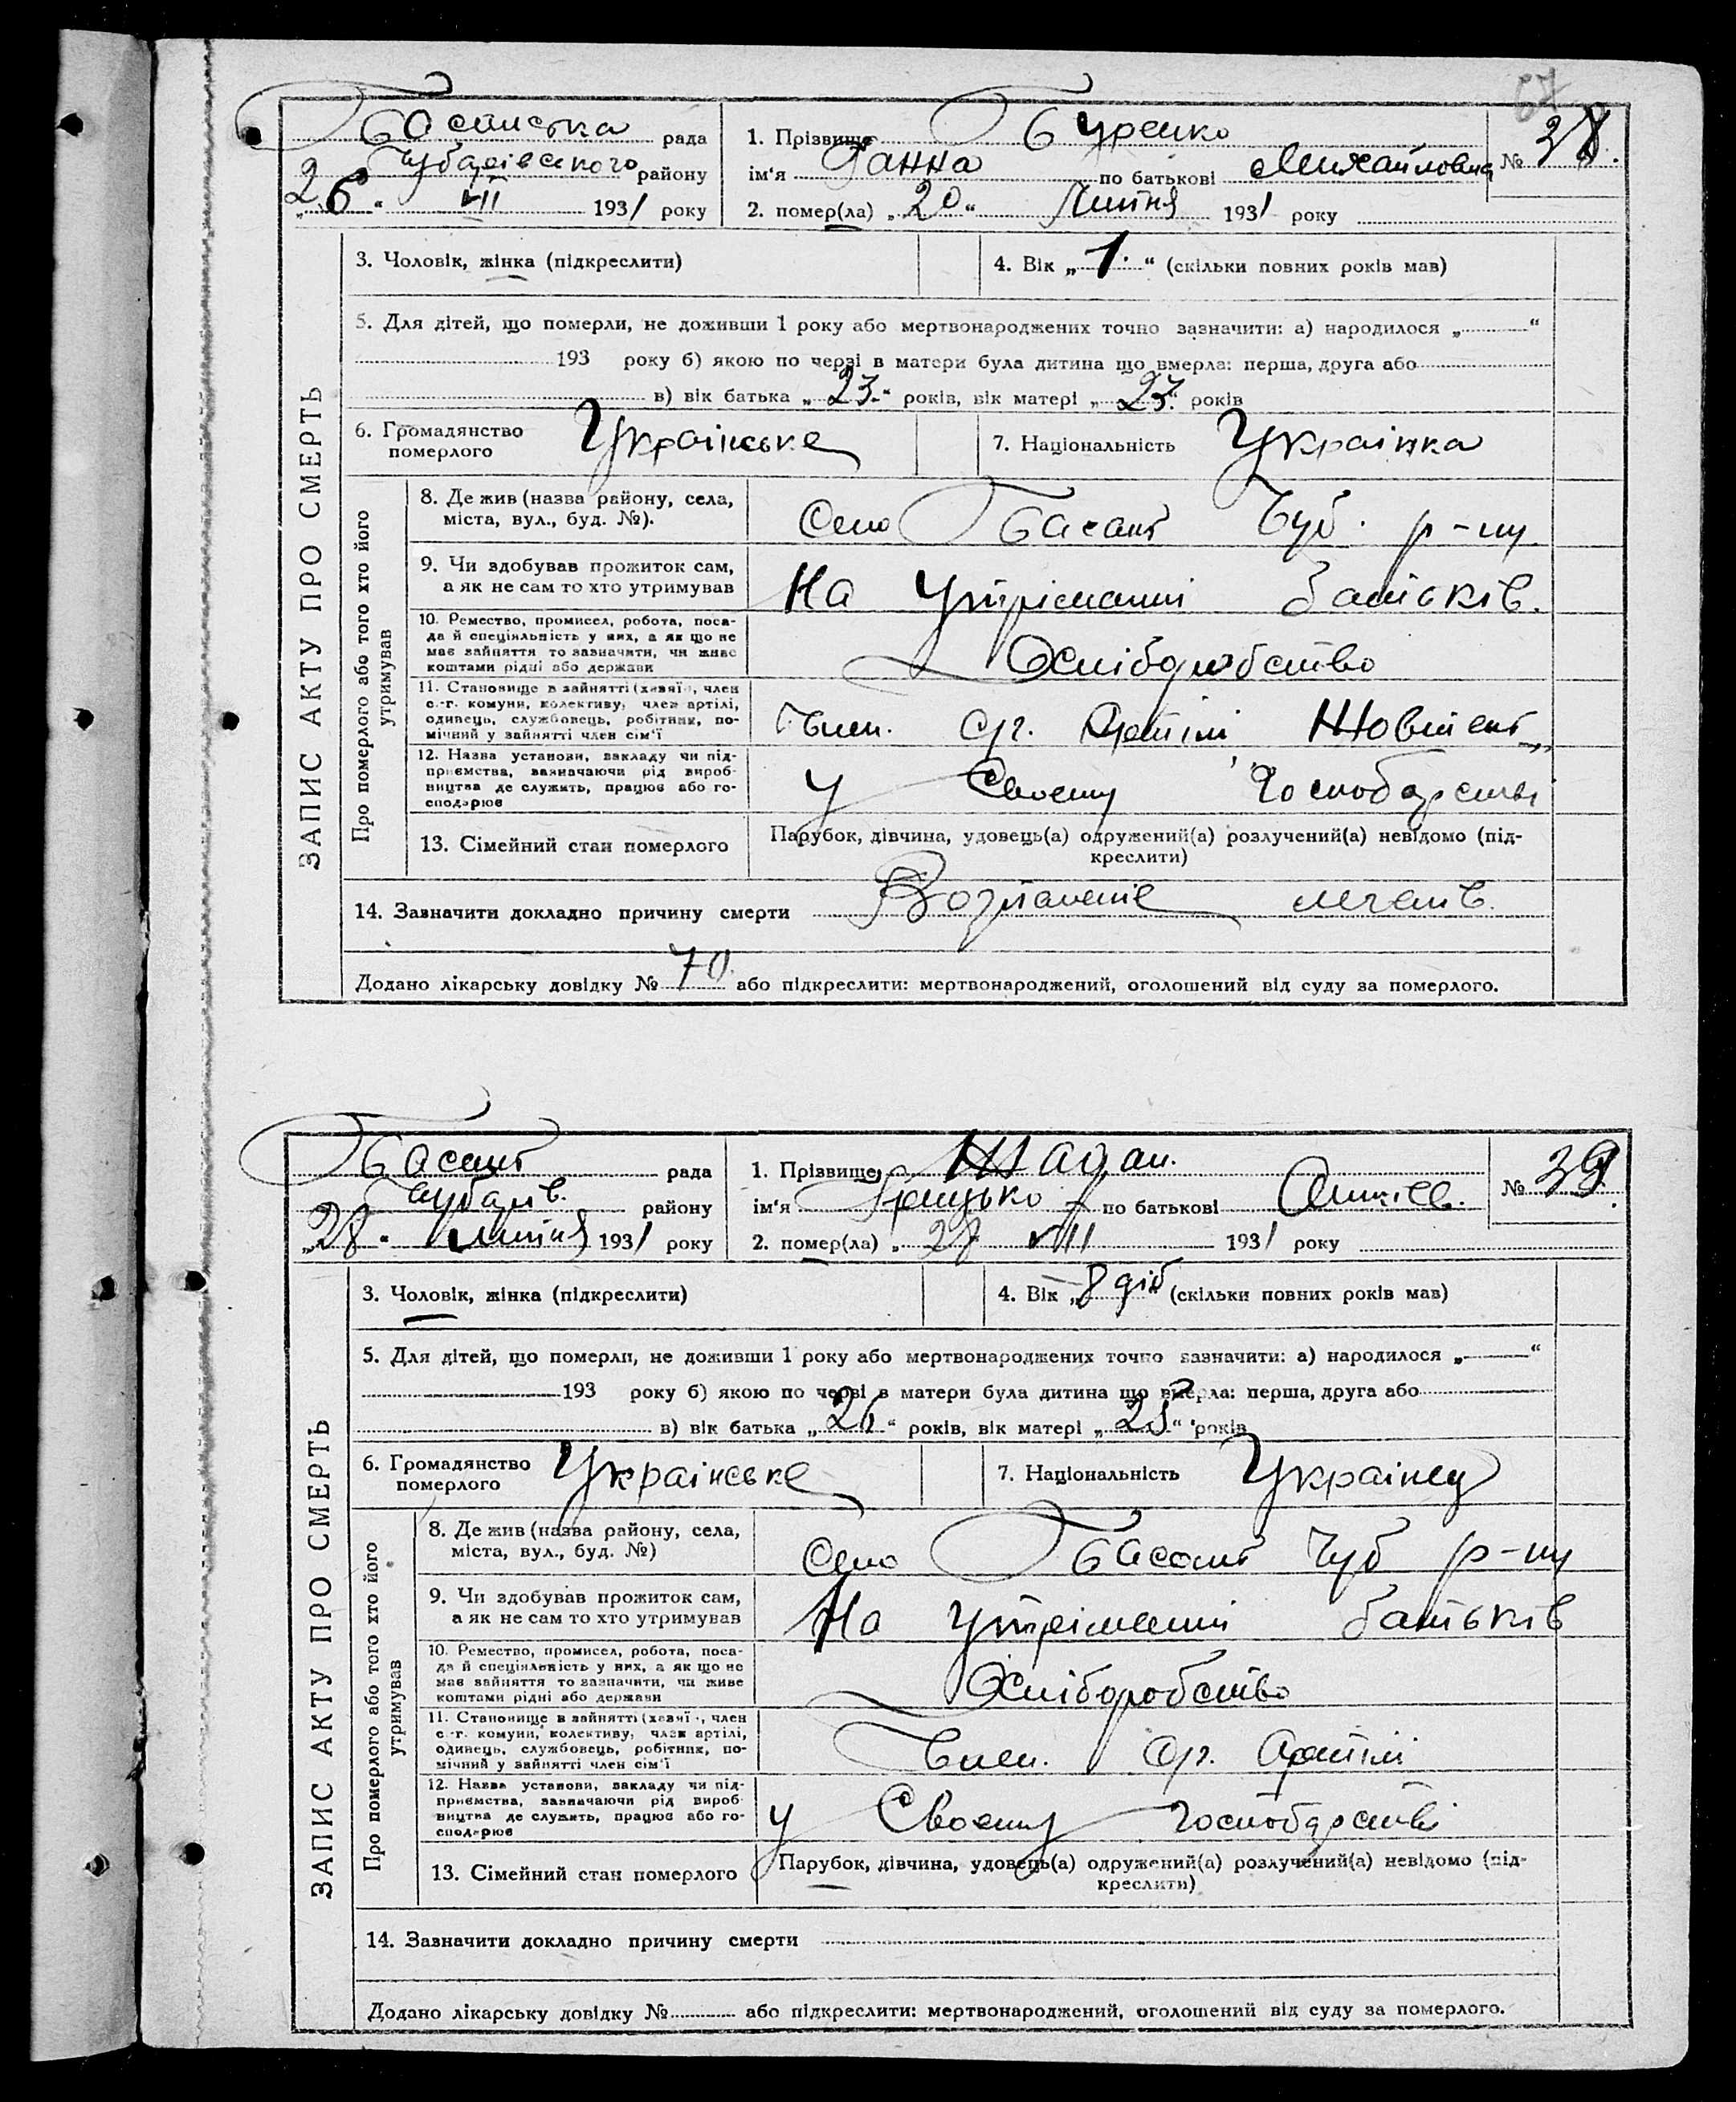 67
Басанська рада
Чубарівського району
„26“ VII 1931 року
1. Прізвище Буренко
ім'я Ганна по батькові Михайловна
№ 38.
2. помер(ла) „20“ Липня 1931 року
ЗАПИС АКТУ ПРО СМЕРТЬ
3. Чоловік, жінка (підкреслити)
4. Вік „1.“ (скільки повних років мав)
5. Для дітей, що померли, не доживши 1 року або мертвонароджених точно зазначити: а) народилося „ “
193 року б) якою по черзі в матери була дитина що вмерла: перша, друга або
в) вік батька „23.“ років, вік матері „23.“ років
6. Громадянство померлого Украінське
7. Національність Украінка
Про померлого або того хто його утримував
8. Де жив (назва району, села,
міста, вул., буд. №).
Село Басань Чуб. р-ну
9. Чи здобував прожиток сам,
а як не сам то хто утримував
На утріманні батьків.
10. Ремество, промисел, робота, поса-
да й спеціяльність у них, а як що не
має зайняття то зазначити, чи живе
коштами рідні або держави
Хліборобство
11. Становище в зайнятті (хазяї , член
с.-г. комуни, колективу, член артілі,
одинець, службовець, робітник, по-
мічний у зайнятті член сім'ї
Член. с/г. Артілі
12. Назва установи, закладу чи під-
приємства, зазначаючи рід вироб-
ництва де служить, працює або го-
сподарює
У Своему Господарстві
13. Сімейний стан померлого
Парубок, дівчина, удовець(а) одружений(а) розлучений(а) невідомо (під-
креслити)
14. Зазначити докладно причину смерти
Додано лікарську довідку № 70. або підкреслити: мертвонароджений, оголошений від суду за померлого.
Басанс рада
Чубарів. району
„28“ Липня 1931 року
1. Прізвище Жадан.
ім'я Грицько по батькові
№ 39.
2. помер(ла) „27 VIII 1931 року
ЗАПИС АКТУ ПРО СМЕРТЬ
3. Чоловік, жінка (підкреслити)
4. Вік „8 діб“ (скільки повних років мав)
5. Для дітей, що померли, не доживши 1 року або мертвонароджених точно зазначити: а) народилося „ “
193 року б) якою по черзі в матери була дитина що вмерла: перша, друга або
в) вік батька „26“ років, вік матері „25“ років
6. Громадянство померлого Украінське
7. Національність Украінец
Про померлого або того хто його утримував
8. Де жив (назва району, села,
міста, вул., буд. №)
Село Басань Чуб р-ну
9. Чи здобував прожиток сам,
а як не сам то хто утримував
На утріманні батьків
10. Ремество, промисел, робота, поса-
да й спеціяльність у них, а як що не
має зайняття то зазначити, чи живе
коштами рідні або держави
Хліборобство
11. Становище в зайнятті (хазяї , член
с-г. комуни, колективу, член артілі,
одинець, службовець, робітник, по-
мічний у зайнятті член сім'ї
Член. с/г. Артілі
12. Назва установи, закладу чи під-
приємства, зазначаючи рід вироб-
ництва де служить, працює або го-
сподарює
у Своему господарстві
13. Сімейний стан померлого
Парубок, дівчина, удовець(а) одружений(а) розлучений(а) невідомо (під-
креслити)
14. Зазначити докладно причину смерти
Додано лікарську довідку № або підкреслити: мертвонароджений, оголошений від суду за померлого.